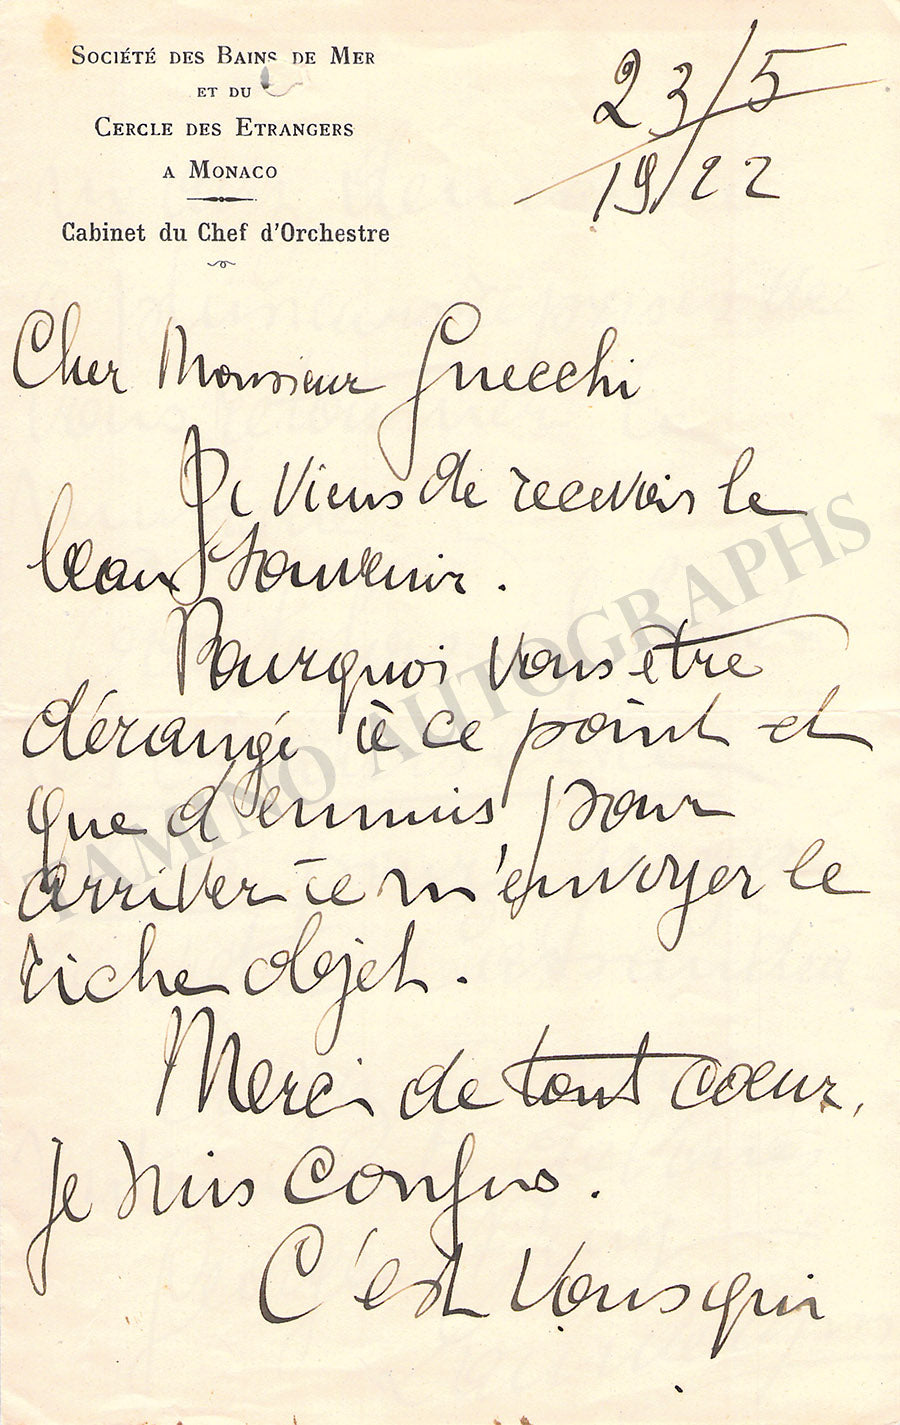 SOCIÉTÉ DES BAINS DE MER
ET DU
CERCLE DES ETRANGERS
A MONACO
Cabinet du Chef d'Orchestre
23/5
19/22
Cher Monsieur Gnecchi
Je viens de recevoir le
beau souvenir.
Pourquoi vous être
dérangé à ce point et
que d'ennuis pour
arriver à m'envoyer le
riche objet.
Merci de tout coeur,
je suis confus.
C'est vous qui
TAMINO AUTOGRAPHS